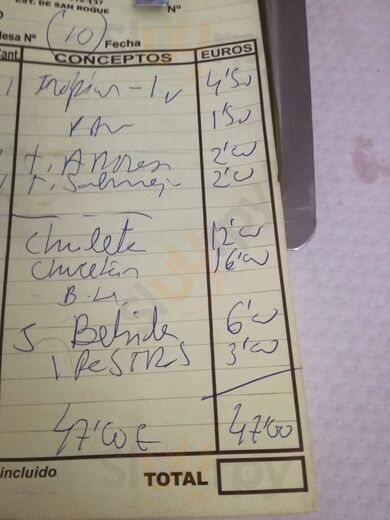 EST. DE SAN ROQUE
Mesa Nº 10 Fecha Nº
Cant. CONCEPTOS EUROS
1 - 1 4'50
Pan 1'50
1 t. 2'00
1 t. 2'00
Chuleta 12'00
Chuletón 16'00
5 Bebida 6'00
1 Postres 3'00
47'00 € 47'00
incluido TOTAL
Sluurpy